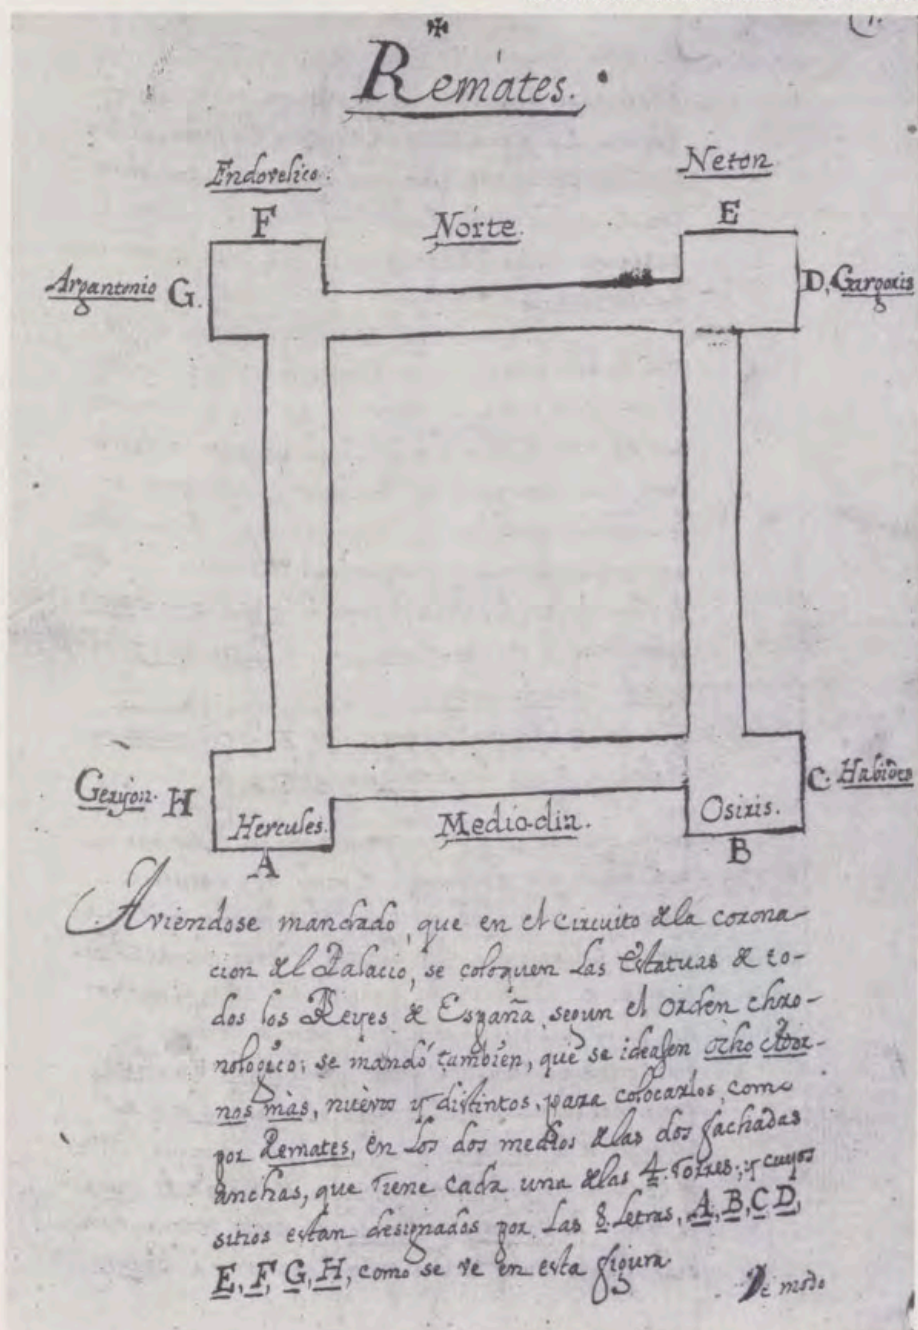 1.
Remates.
Endovelico.
Neton
F
Norte.
E
Argantonio G.
D, Gargoris
Geryon. H
C. Habides
Hercules.
Medio-dia.
Osiris.
A
B
Aviendose mandado, que en el circuito de la corona-
cion del Palacio, se coloquen las estatuas de to-
dos los Reyes de España, segun el orden chro-
nologico; se mandó tambien, que se ideasen ocho Ador-
nos màs, nuevos y distintos, para colocarlos, como
por Remates, en los dos medios de las dos fachadas
anchas, que tiene cada una de las 4. Torres; y cuyos
sitios estan designados por las 8. Letras, A, B, C D,
E, F, G, H, como se ve en esta figura.
De modo